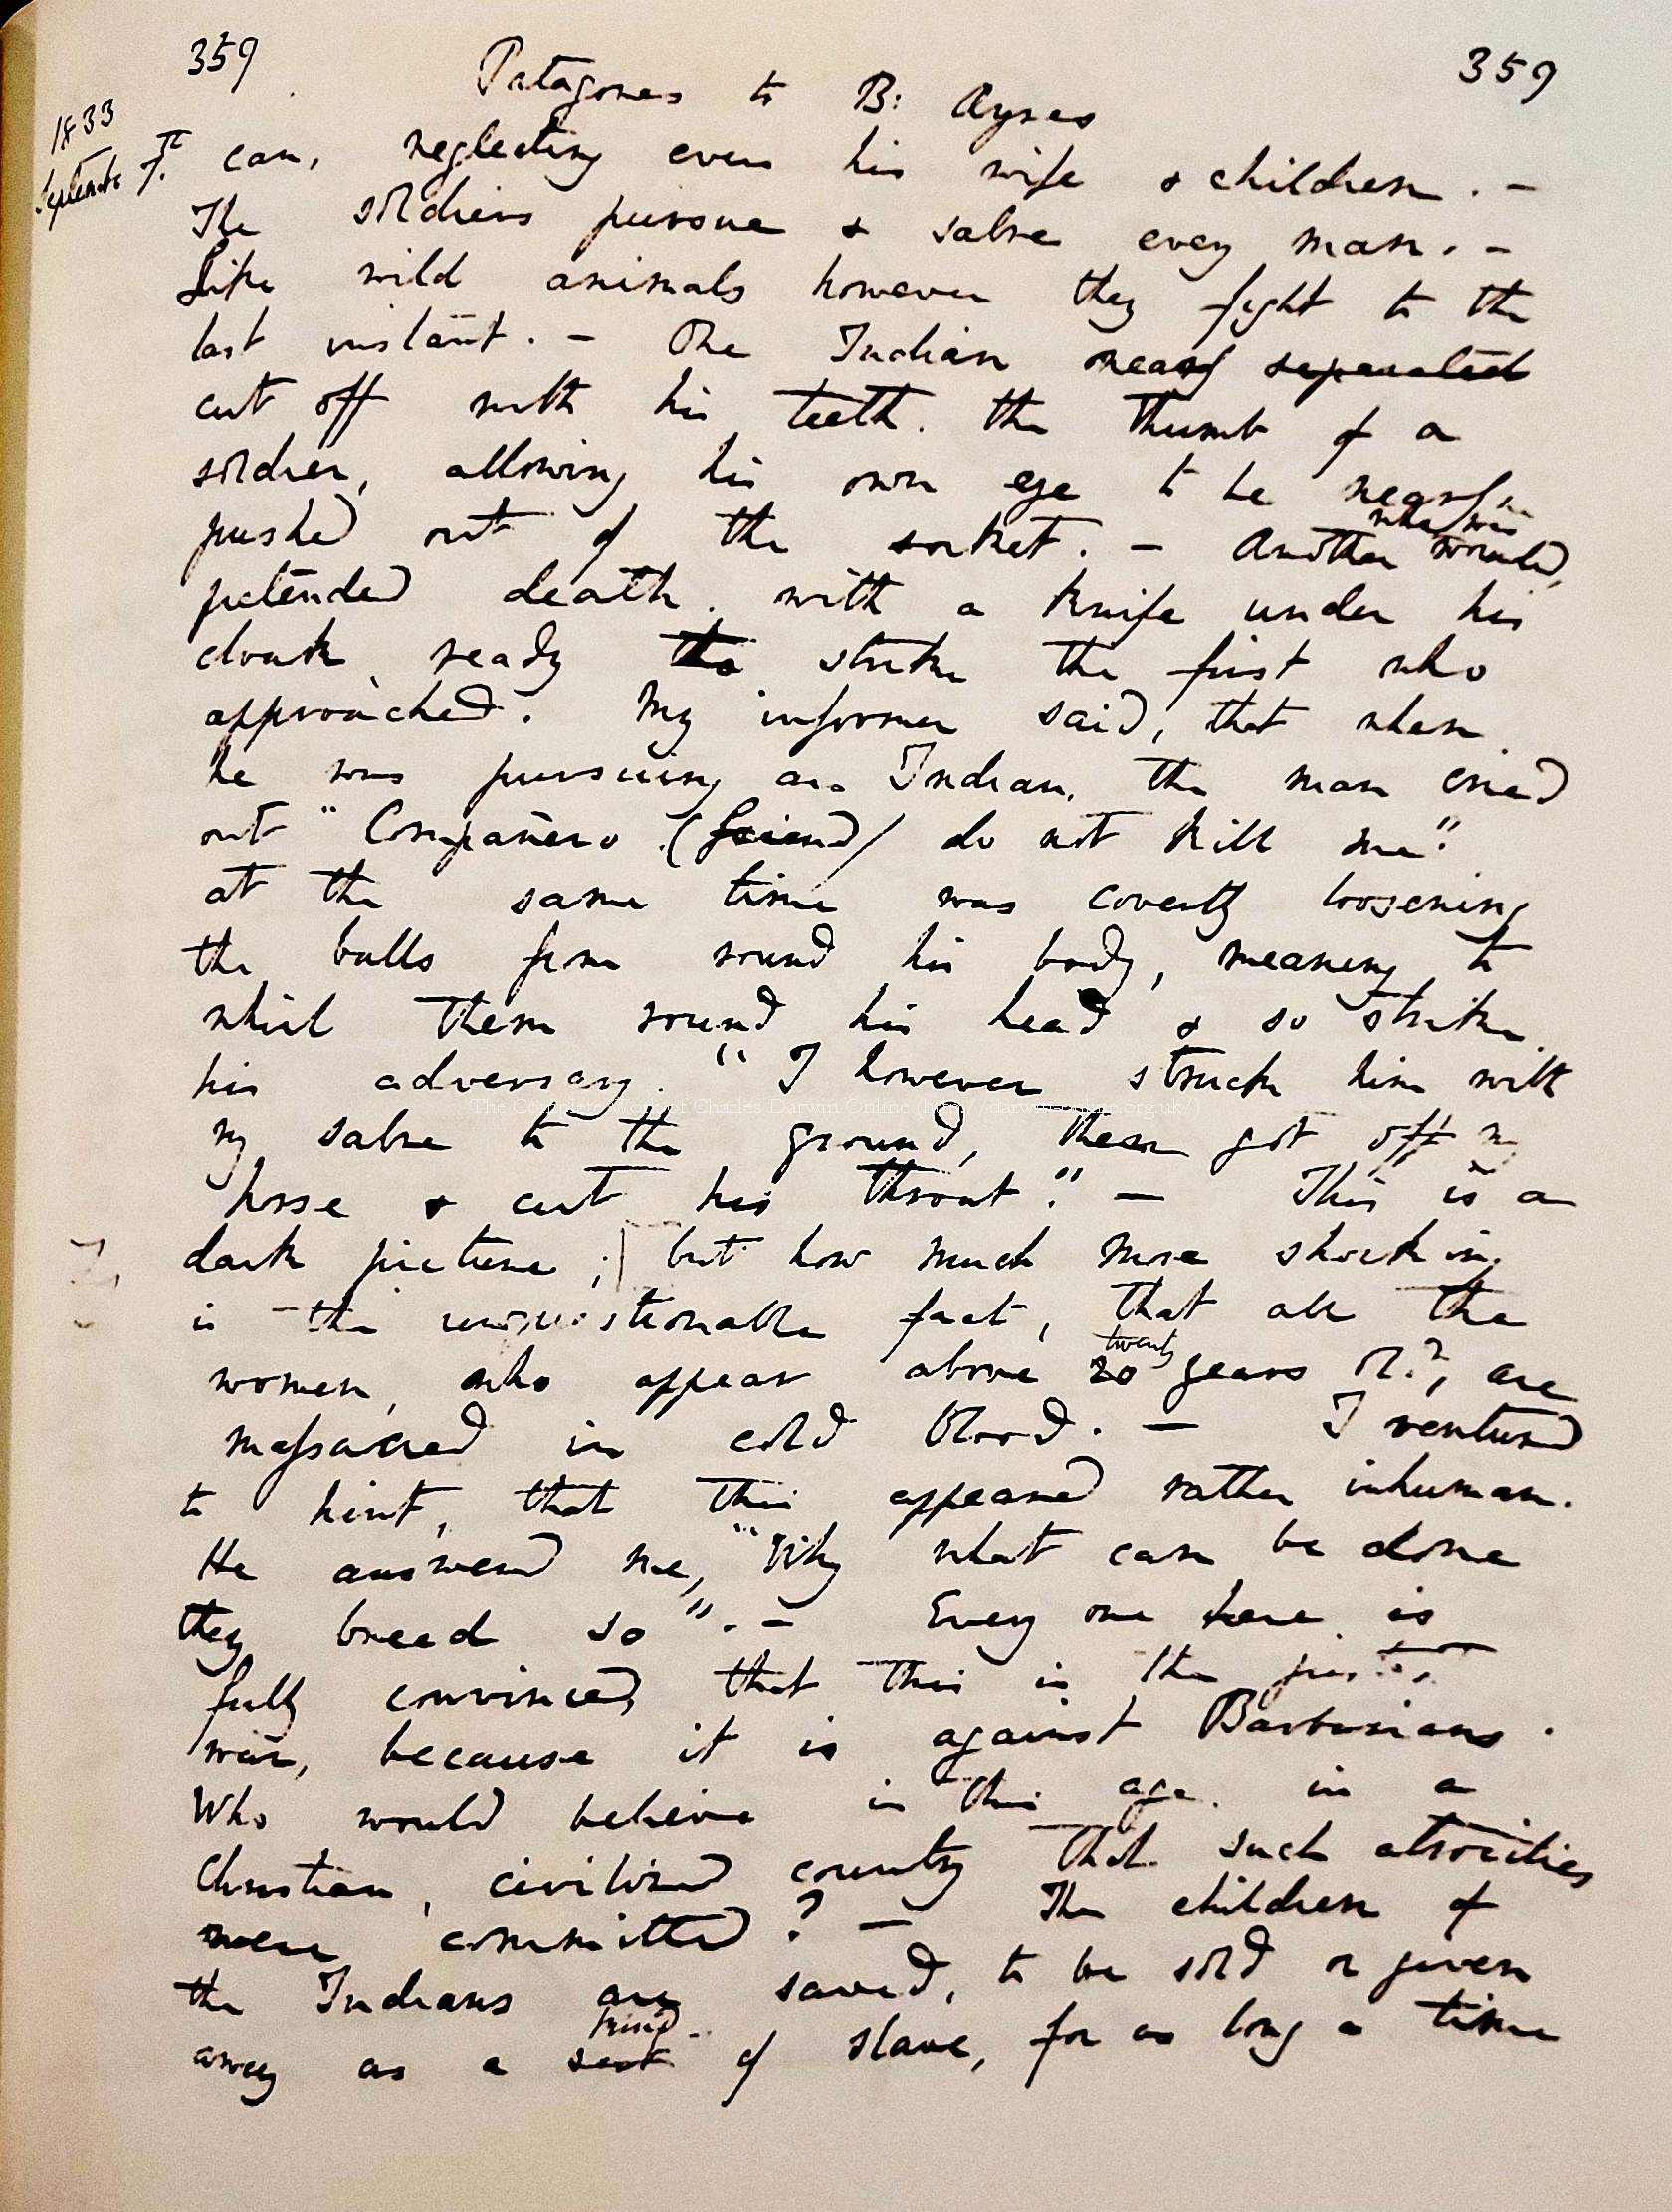 359 Patagones to B: Ayres 359
1833
September 7th
can, neglecting even his wife & children. —
The soldiers pursue & sabre every man. —
Like wild animals however they fight to the
last instant. — One Indian nearly separated
cut off with his teeth. the thumb of a
soldier, allowing his own eye to be nearly
pushed out of the socket. — Another who was wounded,
pretended death. with a knife under his
cloak, ready to strike the first who
approached. My informer said, that when
he was pursuing an Indian, the man cried
out "Companero (friend) do not kill me"
at the same time was covertly loosening
the balls from round his body, meaning to
whirl them round his head & so strike
his adversary. "I however struck him with
my sabre to the ground, then got off my
horse & cut his throat". — This is a
dark picture; but how much more shocking
is the unquestionable fact, that all the
women, who appear above 20 twenty years old, are
massacred in cold blood. — I ventured
to hint, that this appeared rather inhuman.
He answered me, "Why what can be done
they breed so". — Every one here is
fully convinced that this is the justest
war, because it is against Barbarians.
Who would believe in this age. in a
Christian, civilized country that such atrocities
were committed? — The children of
the Indians are saved, to be sold or given
away as a sort kind of slave, for as long a time
The Complete Work of Charles Darwin Online